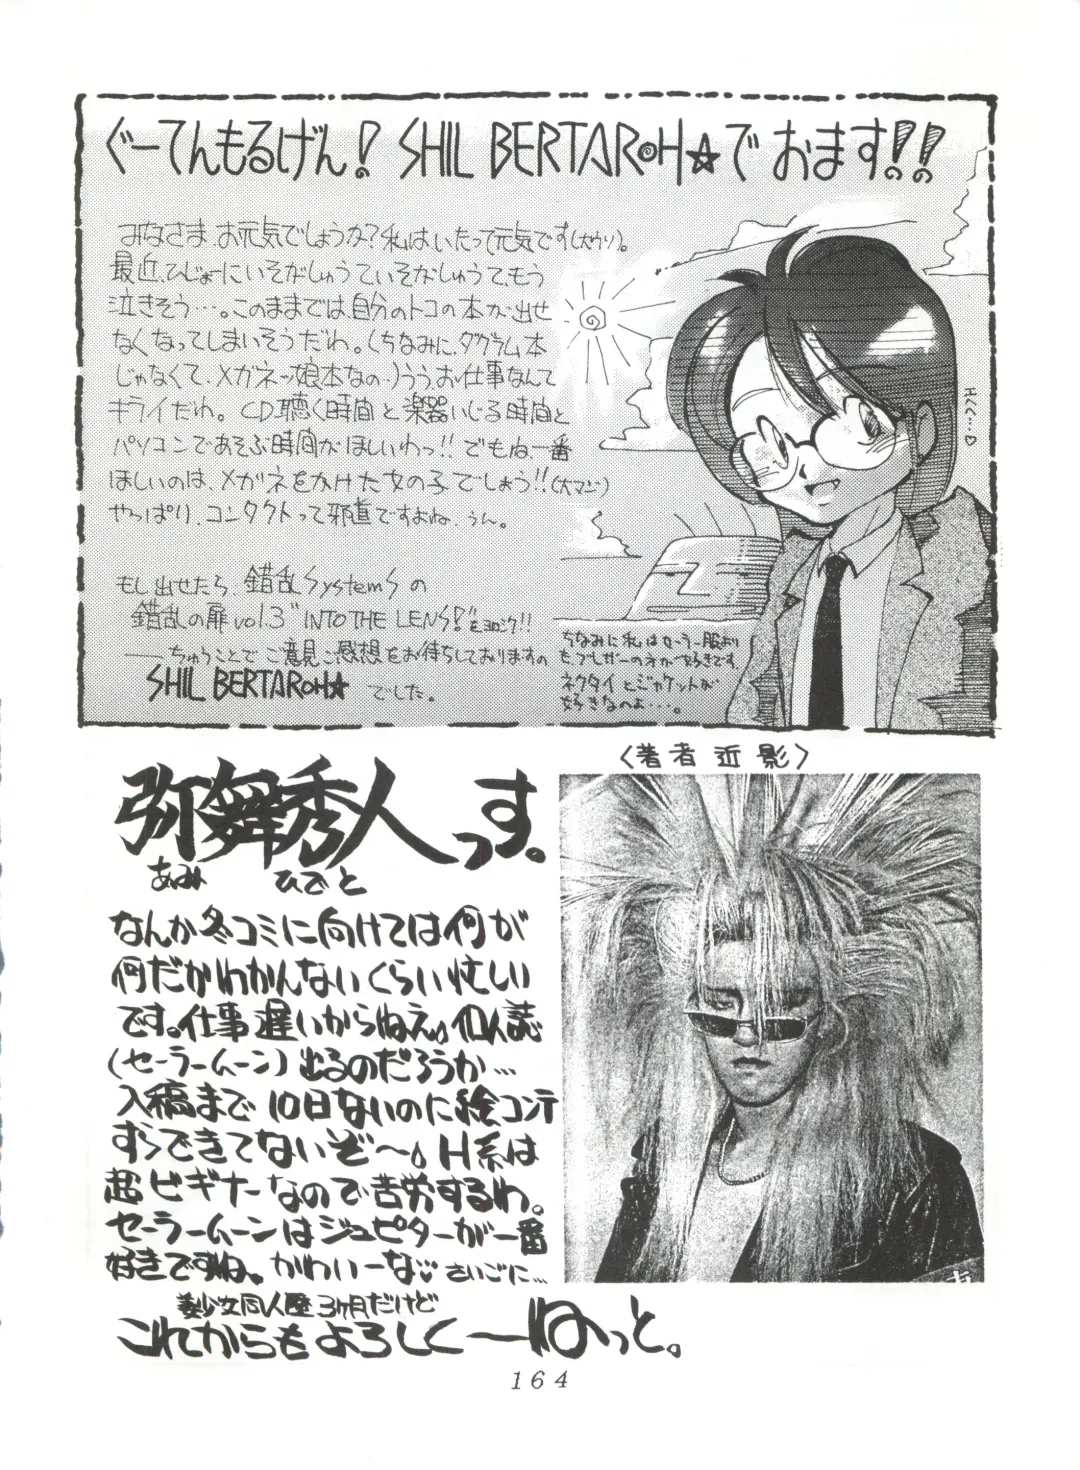 ぐーてんもるげん! SHIL BERTAROH☆でおます!!
みなさま、お元気でしょうか?私はいたって元気です(大ウソ)。
最近、ひじょーにいそがしゅうていそがしゅうて、もう
泣きそう…。このままでは、自分のトコの本が出せ
なくなってしまいそうだわ。(ちなみに、ダグラム本
じゃなくて、メガネッ娘本なの。)ううお仕事なんて
キライだわ。CD聴く時間と楽器いじる時間と
パソコンであそぶ時間がほしいわっ!!でもね、一番
ほしいのは、メガネをかけた女の子でしょう!!(大マジ)
やっぱり、コンタクトって邪道ですよね、うん。
もし出せたら、錯乱SystemSの
錯乱の扉vol.3"INTO THE LENS!"をヨロシク!!
――ちゅうことでご意見ご感想をお待ちしておりますの
SHIL BERTAROH☆でした。
エヘヘ…♡
ちなみに私はセーラー服より
も、ブレザーの方が好きです。
ネクタイとジャケットが
好きなのよ…。
弥舞秀人っす。
あみ ひでと
なんか冬コミに向けては何が
何だかわかんないくらい忙しい
です。仕事遅いからねえ。個人誌
(セーラームーン)出るのだろうか…
入稿まで10日ないのに絵コンテ
すらできてないぞ〜。H系は
超ビギナーなので苦労するわ。
セーラームーンはジュピターが一番
好きですね。かわいーな♡ さいごに…
美少女同人歴3ヶ月だけど
これからもよろしく―ねっと。
〈著者近影〉
164